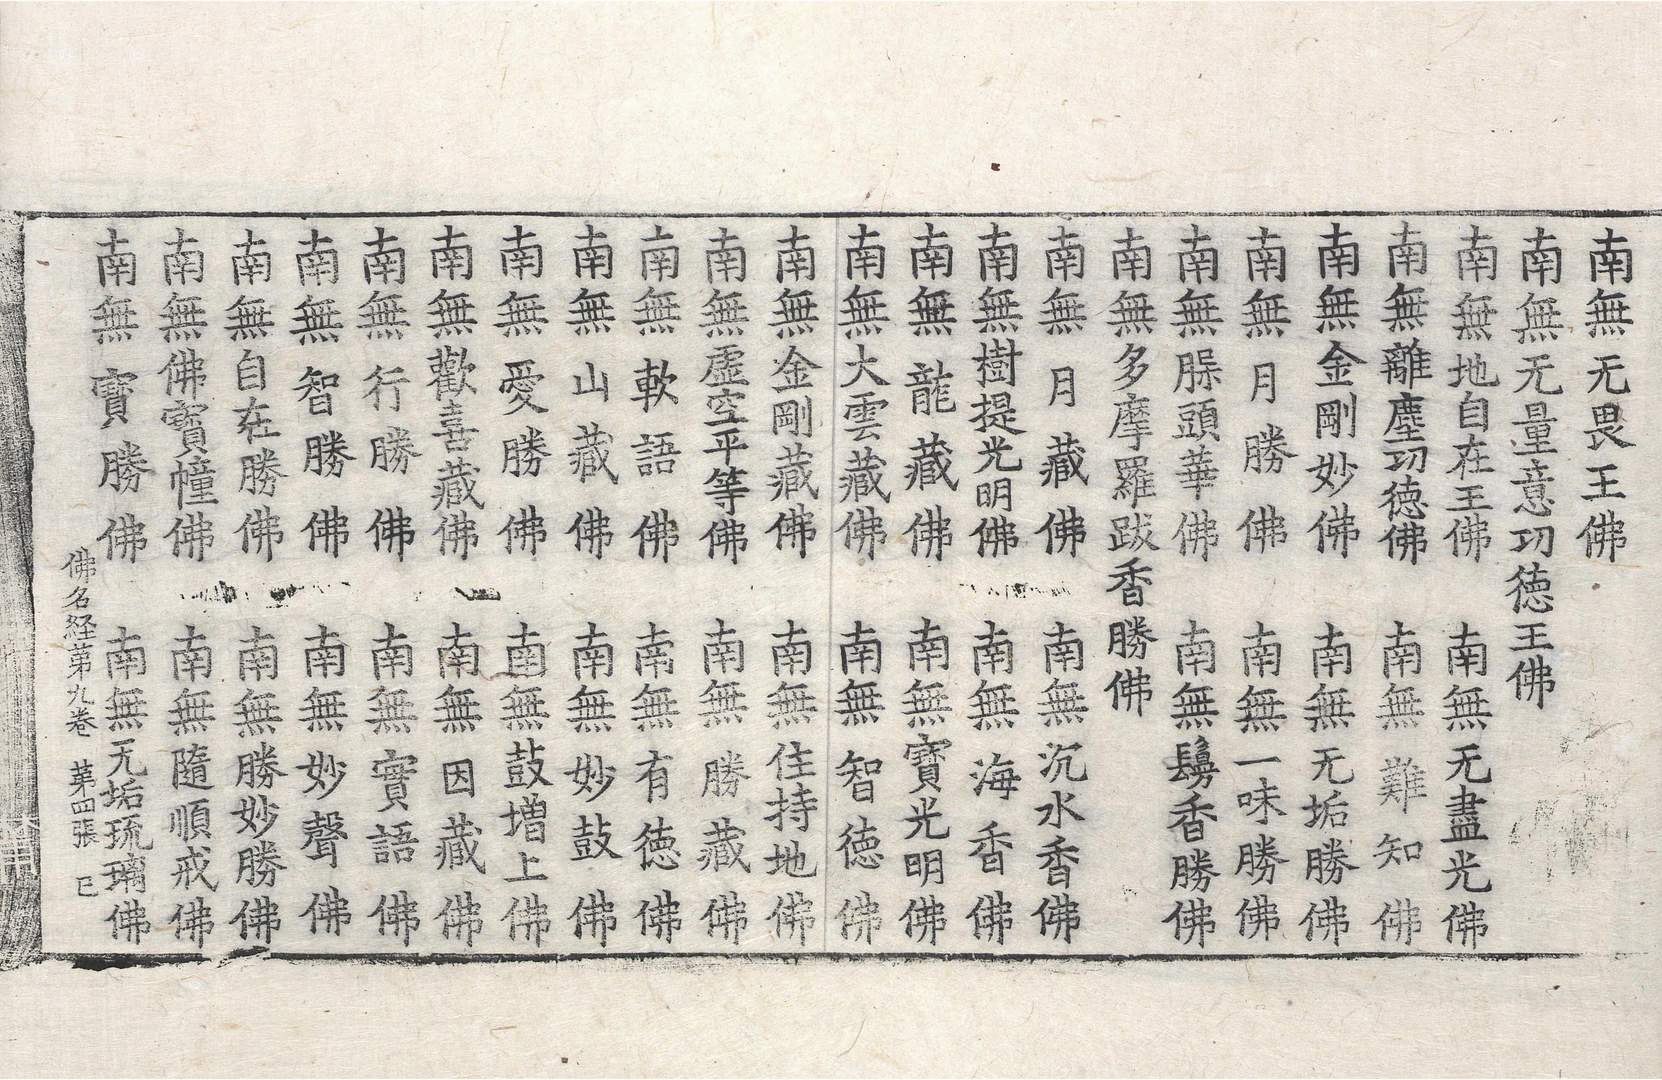 南無无畏王佛
南無无量意功德王佛
南無地自在王佛 南無无盡光佛
南無離塵功德佛 南無難知佛
南無金剛妙佛 南無无垢勝佛
南無月勝佛 南無一味勝佛
南無頭華佛 南無鬘香勝佛
南無多摩羅跋香勝佛
南無月藏佛 南無沉水香佛
南無樹提光明佛 南無海香佛
南無龍藏佛 南無寶光明佛
南無大雲藏佛 南無智德佛
南無金剛藏佛 南無住持地佛
南無虛空平等佛 南無勝藏佛
南無軟語佛 南無有德佛
南無山藏佛 南無妙鼓佛
南無愛勝佛 南無鼓增上佛
南無歡喜藏佛 南無因藏佛
南無行勝佛 南無實語佛
南無智勝佛 南無妙聲佛
南無自在勝佛 南無勝妙勝佛
南無佛寶幢佛 南無隨順戒佛
南無寶勝佛 南無无垢琉璃佛
佛名経第九卷 第四張 巳